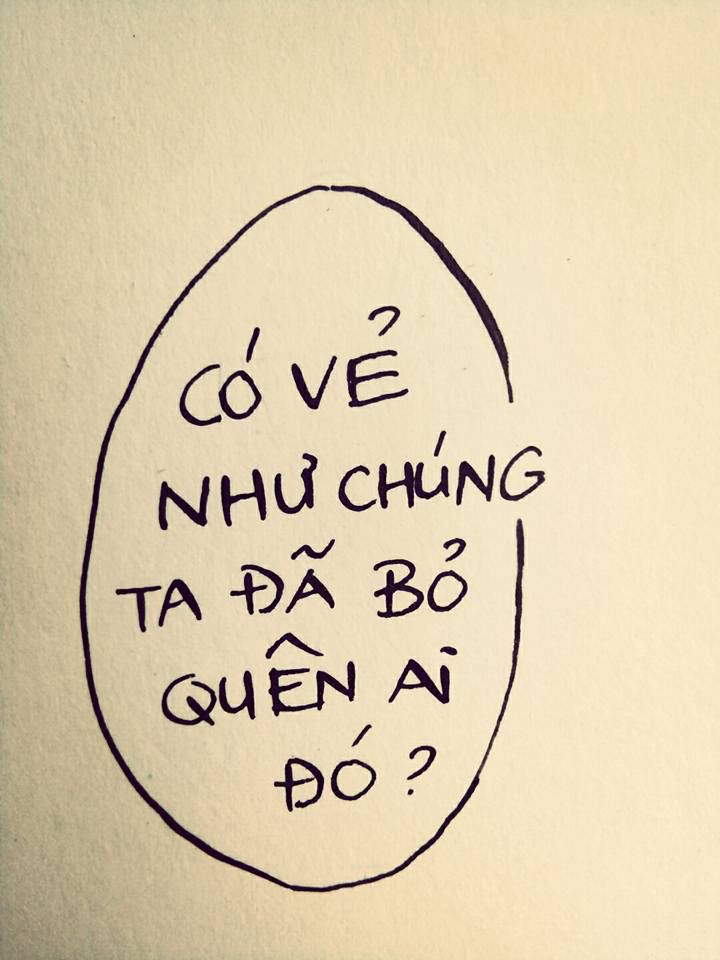 CÓ VẺ
NHƯ CHÚNG
TA ĐÃ BỎ
QUÊN Ai
ĐÓ ?